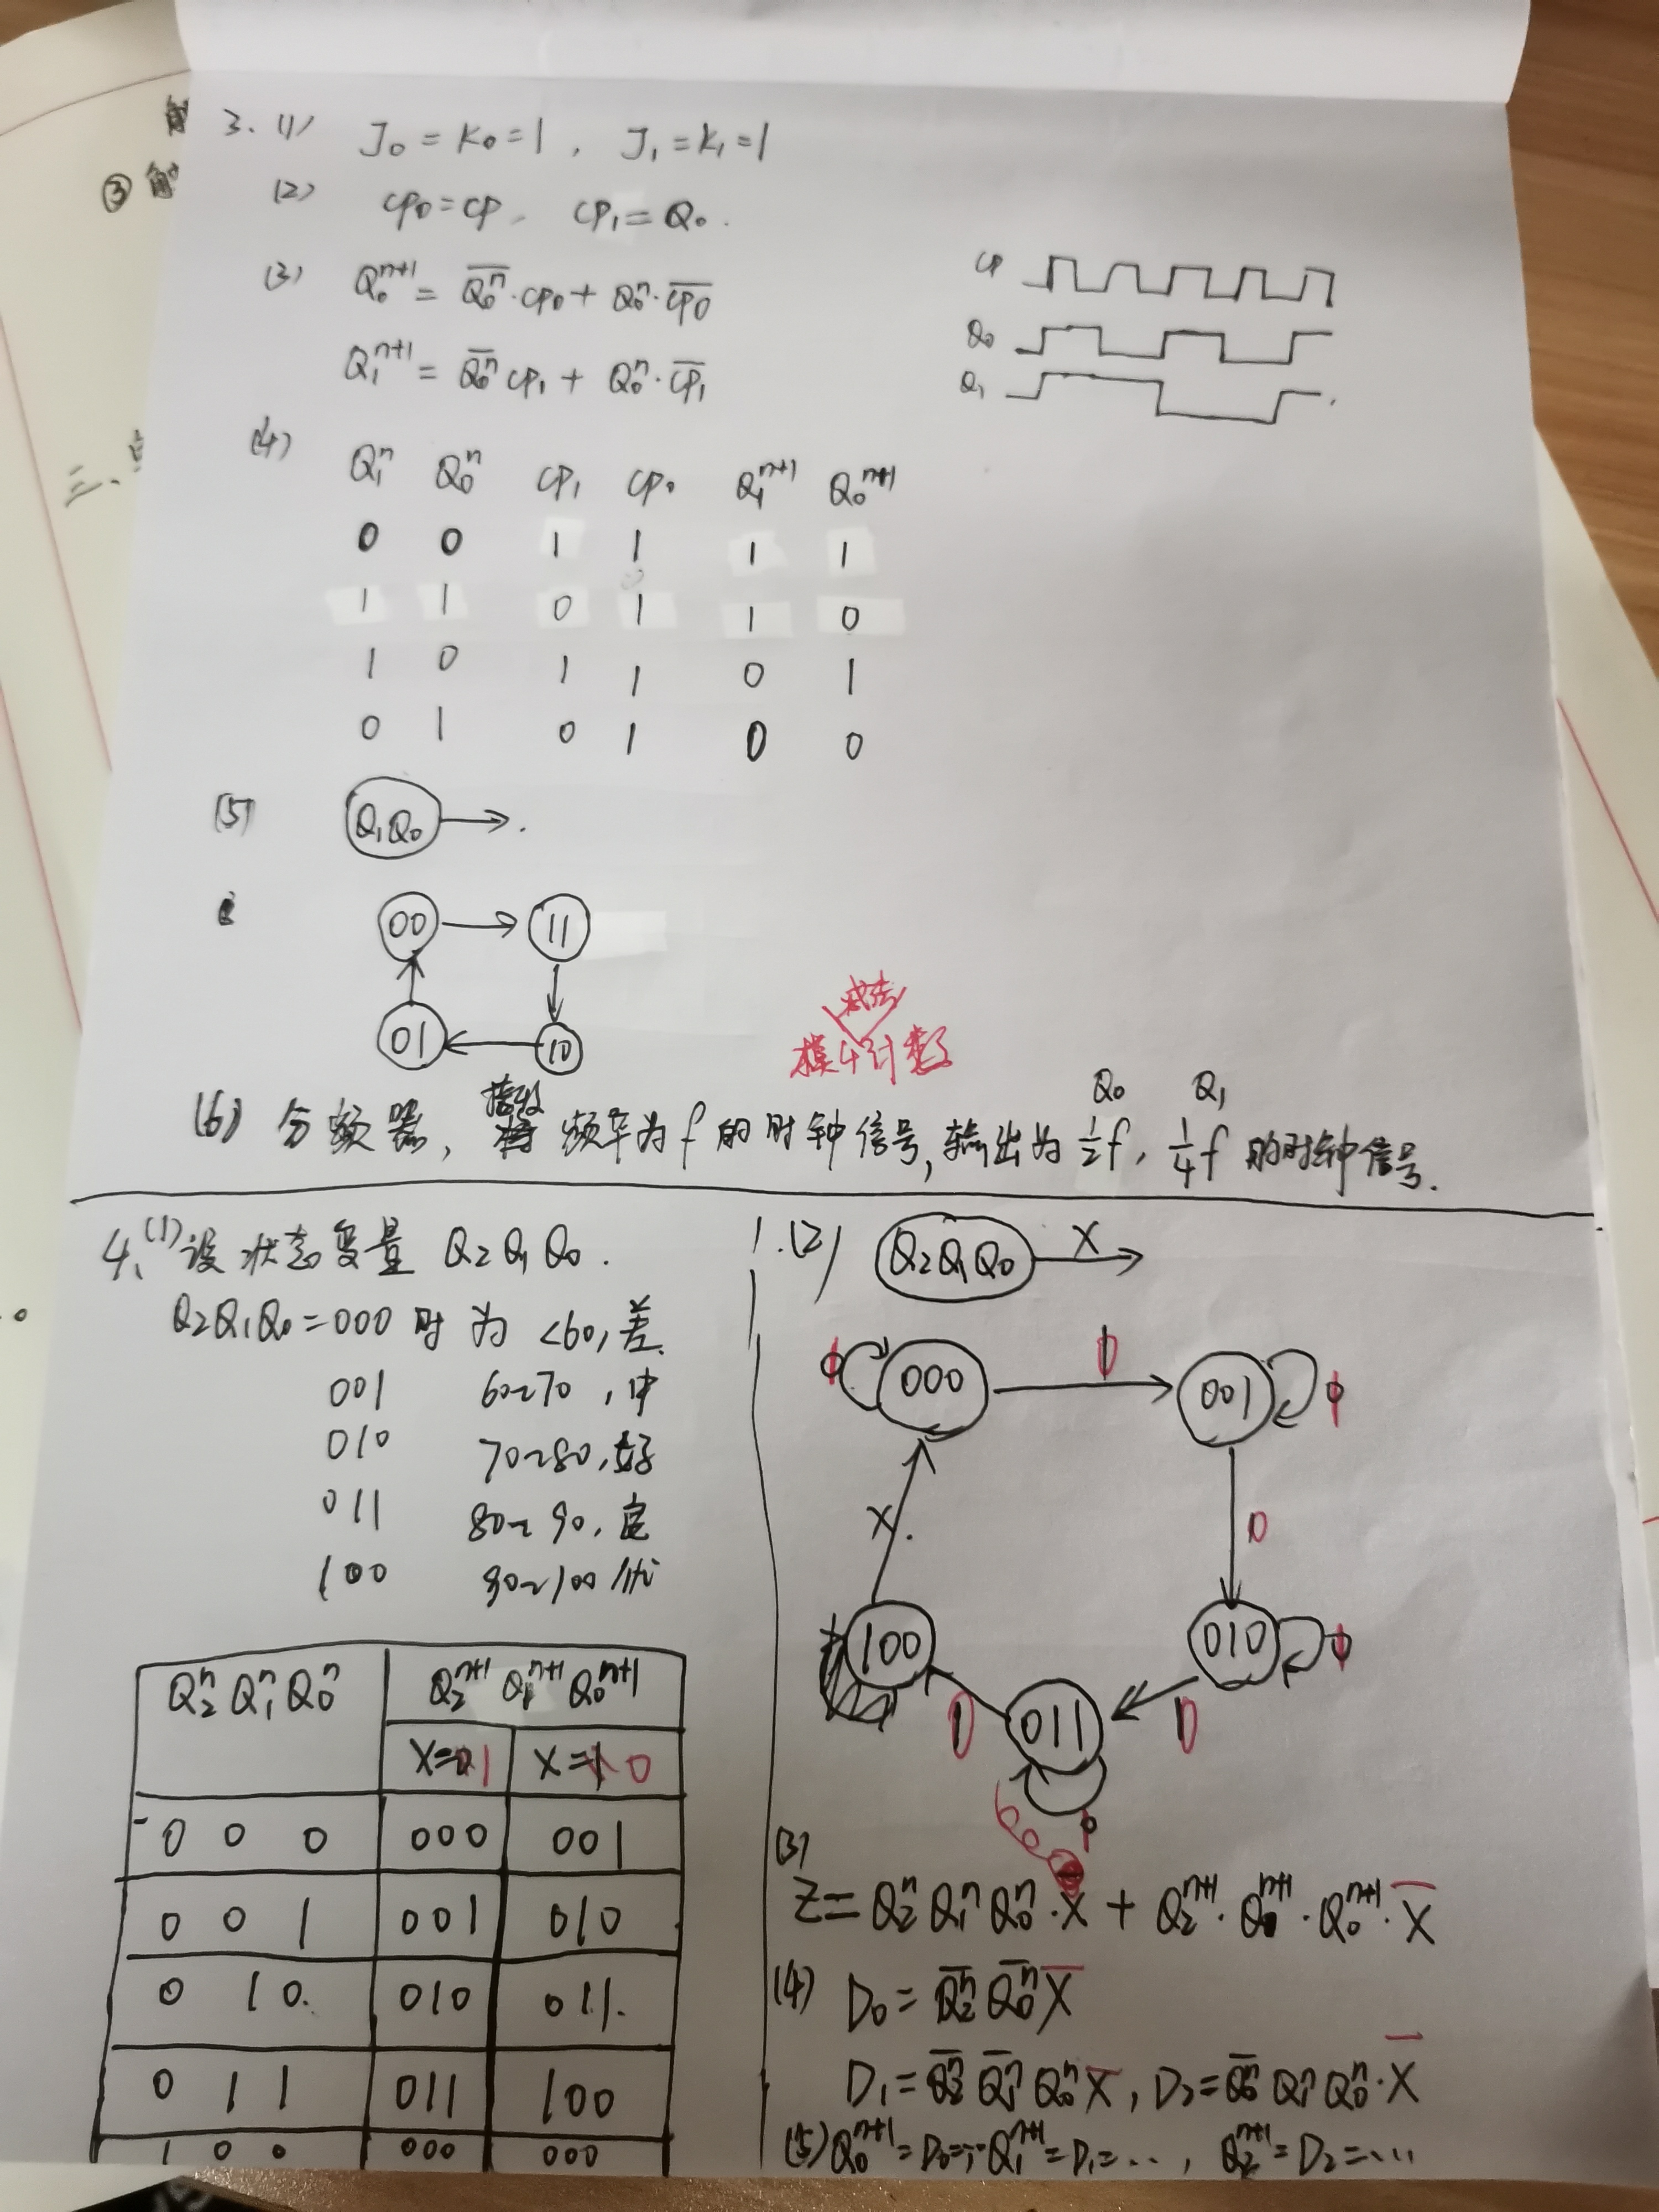 3. (1) J₀ = K₀ = 1 , J₁ = K₁ = 1
③ 解
(2) CP₀ = CP , CP₁ = Q₀ .
(3) Q₀ⁿ⁺¹ = \overline{Q₀ⁿ} · CP₀ + Q₀ⁿ · \overline{CP₀}
Q₁ⁿ⁺¹ = \overline{Q₀ⁿ} CP₁ + Q₀ⁿ · \overline{CP₁}
CP
Q₀
Q₁
三、
(4) Q₁ⁿ Q₀ⁿ CP₁ CP₀ Q₁ⁿ⁺¹ Q₀ⁿ⁺¹
0 0 1 1 1 1
1 1 0 1 1 0
1 0 1 1 0 1
0 1 0 1 0 0
(5) Q₁Q₀ → .
00 → 11
01 ← 10
减法
模4计数
(6) 分频器, 接收 频率为 f 的时钟信号, 输出为 Q₀ ½f , Q₁ ¼f 的时钟信号.
4. (1) 设状态变量 Q₂Q₁Q₀ .
Q₂Q₁Q₀ = 000 时 为 <60, 差.
001 60~70 , 中
010 70~80 , 好
011 80~90 ,
100 90~100
Q₂ⁿ Q₁ⁿ Q₀ⁿ Q₂ⁿ⁺¹ Q₁ⁿ⁺¹ Q₀ⁿ⁺¹
X=1 X=0
0 0 0 000 001
0 0 1 001 010
0 1 0. 010 011.
0 1 1 011 100
1 0 0 000 000
(2) Q₂Q₁Q₀ X →
000 0 001
X. 0
100 010
0 011 0
(3)
Z = Q₂ⁿ Q₁ⁿ Q₀ⁿ · X + Q₂ⁿ⁺¹ · Q₁ⁿ⁺¹ · Q₀ⁿ⁺¹ · \overline{X}
(4) D₀ = \overline{Q₂ⁿ} \overline{Q₀ⁿ} \overline{X}
D₁ = \overline{Q₂ⁿ} \overline{Q₁ⁿ} Q₀ⁿ \overline{X} , D₂ = \overline{Q₂ⁿ} Q₁ⁿ Q₀ⁿ · \overline{X}
(5) Q₀ⁿ⁺¹ = D₀ = … Q₁ⁿ⁺¹ = D₁ = … , Q₂ⁿ⁺¹ = D₂ = …